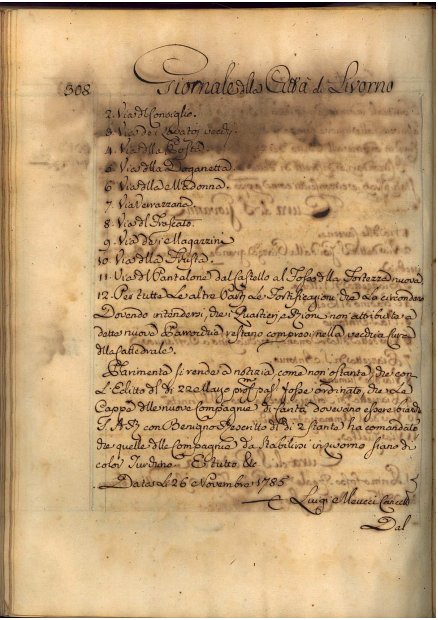 308
Giornale della Città di Livorno
2. Via del Consiglio.
3. Via dei
4. Via della Posta.
5. Via della Doganetta.
6. Via della Madonna.
7. Via Verrazzana
8. Via del Frascato.
9. Via dei Magazzini
10. Via della
11. Via del Pantalone dal Castello al Fosso della Fortezza nuova
12. Per tutte Le altre Parti Le Fortificazioni che La circondano
Dovendo intendersi, che i Quartieri e Rioni non attribuite a
dette nuove Parrocchie restano compresi nella vecchia Cura
della Cattedrale.
Parimenta si rende a notizia, come non ostante che con
L'Editto del dì 22 Maggio fosse ordinato, che le
Cappe delle nuove Compagnie di Carità dovevano essere bianche
S. A. R. con Benigno Rescritto del dì 2 stante ha comandato
che quelle delle Compagnie da Stabilirsi in Livorno siano di
color Turchino. E tutto &c
Data Li 26 Novembre 1785
Luigi Meucci Cancell
Dal